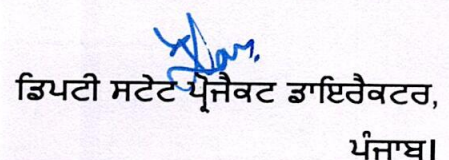 ਡਿਪਟੀ ਸਟੇਟ ਪ੍ਰੋਜੈਕਟ ਡਾਇਰੈਕਟਰ,
ਪੰਜਾਬ।